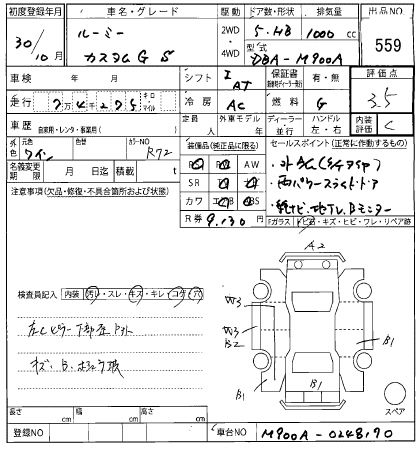 初度登録年月 車名・グレード 駆動 ドア数・形状 排気量 出品NO
30/10月 ルーミー カスタムG S 2WD・4WD 5・HB 1000cc 559
型式 DBA-M900A
車検 年 月 シフト I AT 保証書 有・無 評価点 3.5
走行 7万4千275 キロ マイル 冷房 AC 燃料 G 内装評価 C
車歴 自家用・レンタ・事業用( ) 定員 人 外車モデル 年 ディーラー・並行 ハンドル 左・右
外色 元色 ワイン 色替 カラーNO R72
装備品(純正品に限る) セールスポイント(正常に作動するもの)
名義変更期限 月 日迄 積載 t
AW
SR
カワ
R券 9,130円
・両パワースライドドア
・純ナビ・地デジ,Bモニター
注意事項(欠品・修復・不具合箇所および状態)
Fガラス トビ石・キズ・ヒビ・ワレ・リペア跡
A2
検査員記入 内装 汚れ・スレ・キズ・キレ・コゲ・穴
W3
W3
B2
B1
B1
B1
スペア
長さ cm 幅 cm 高さ cm
登録NO 車台NO M900A-0248170